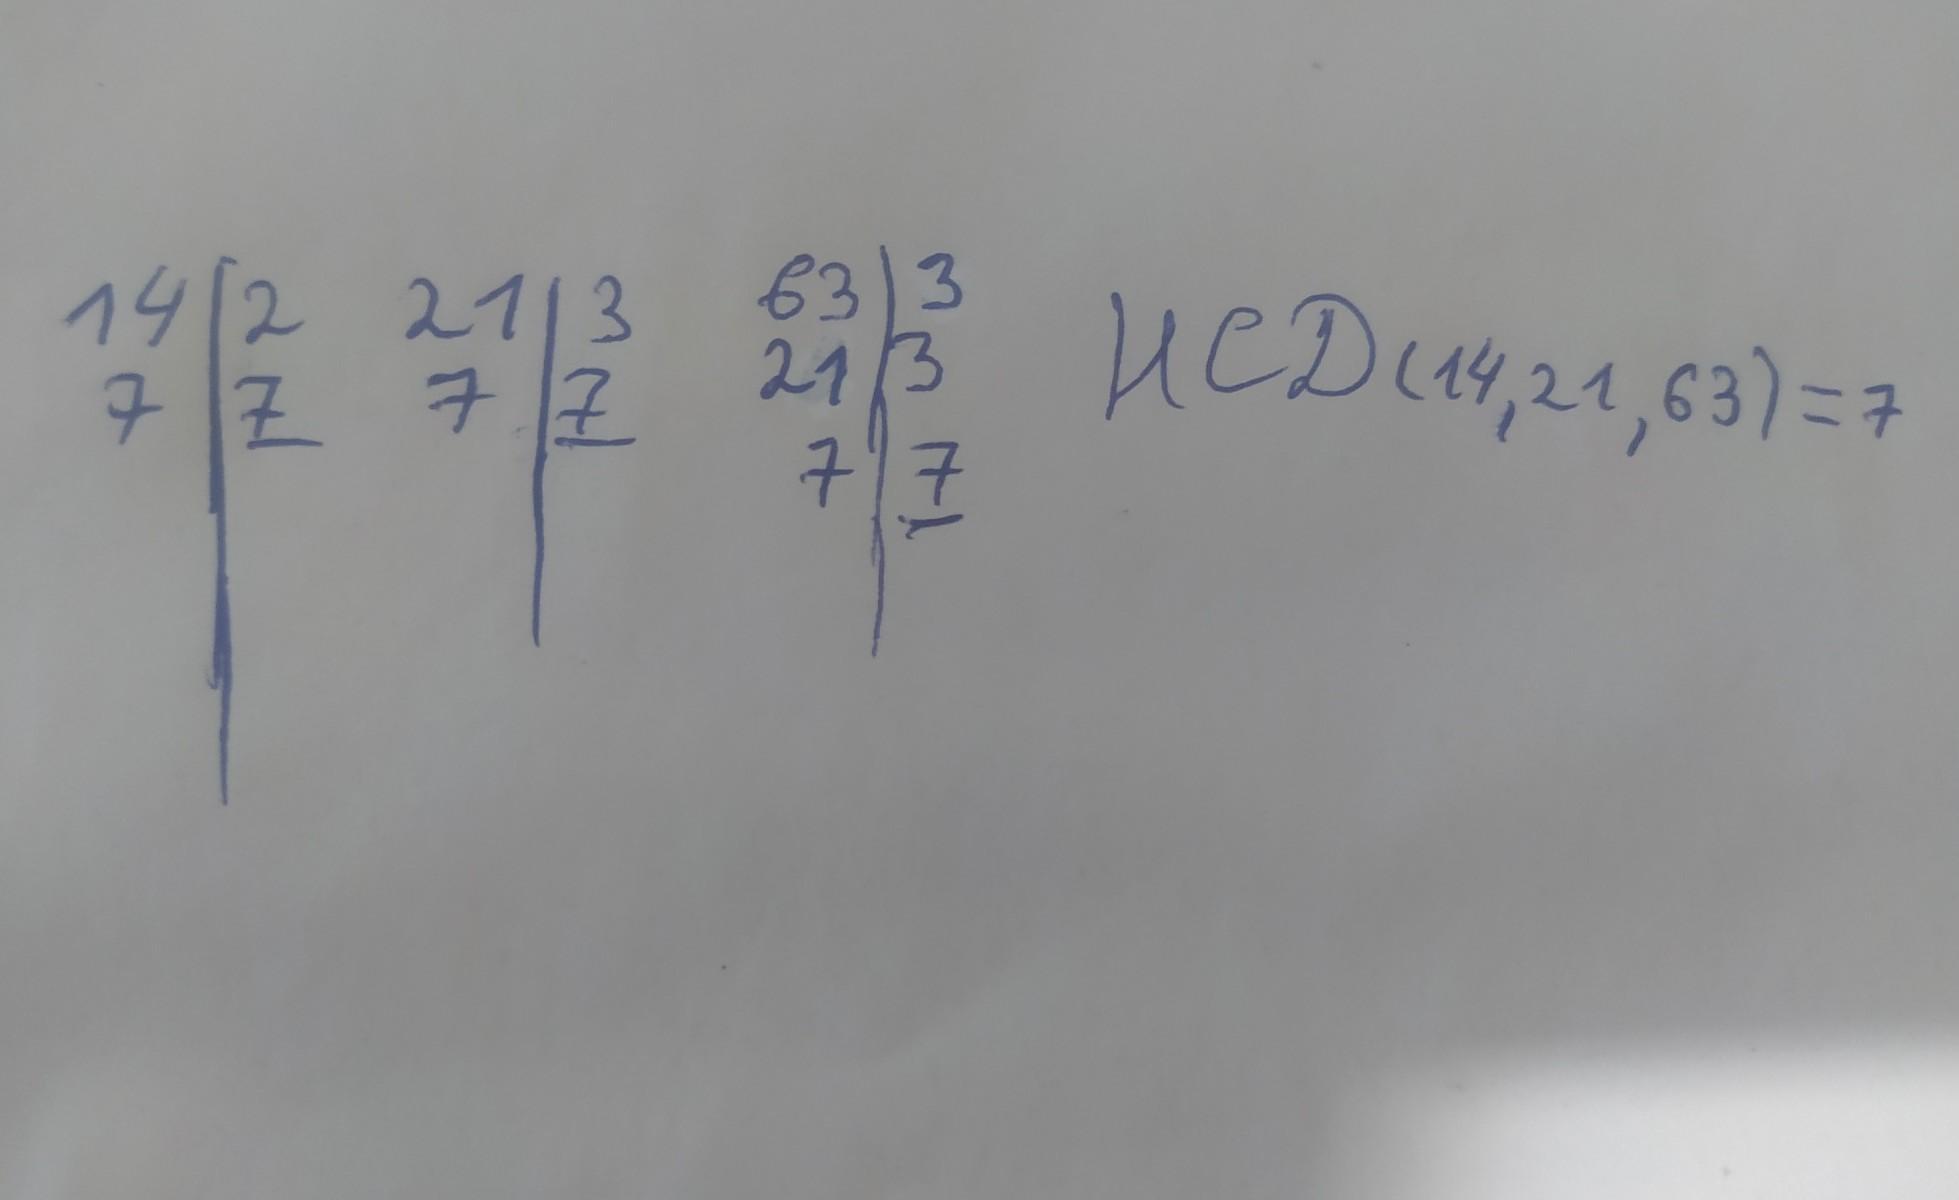 14 | 2   21 | 3   63 | 3   НСD(14,21,63)=7
7 | 7   7 | 7   21 | 3
7 | 7